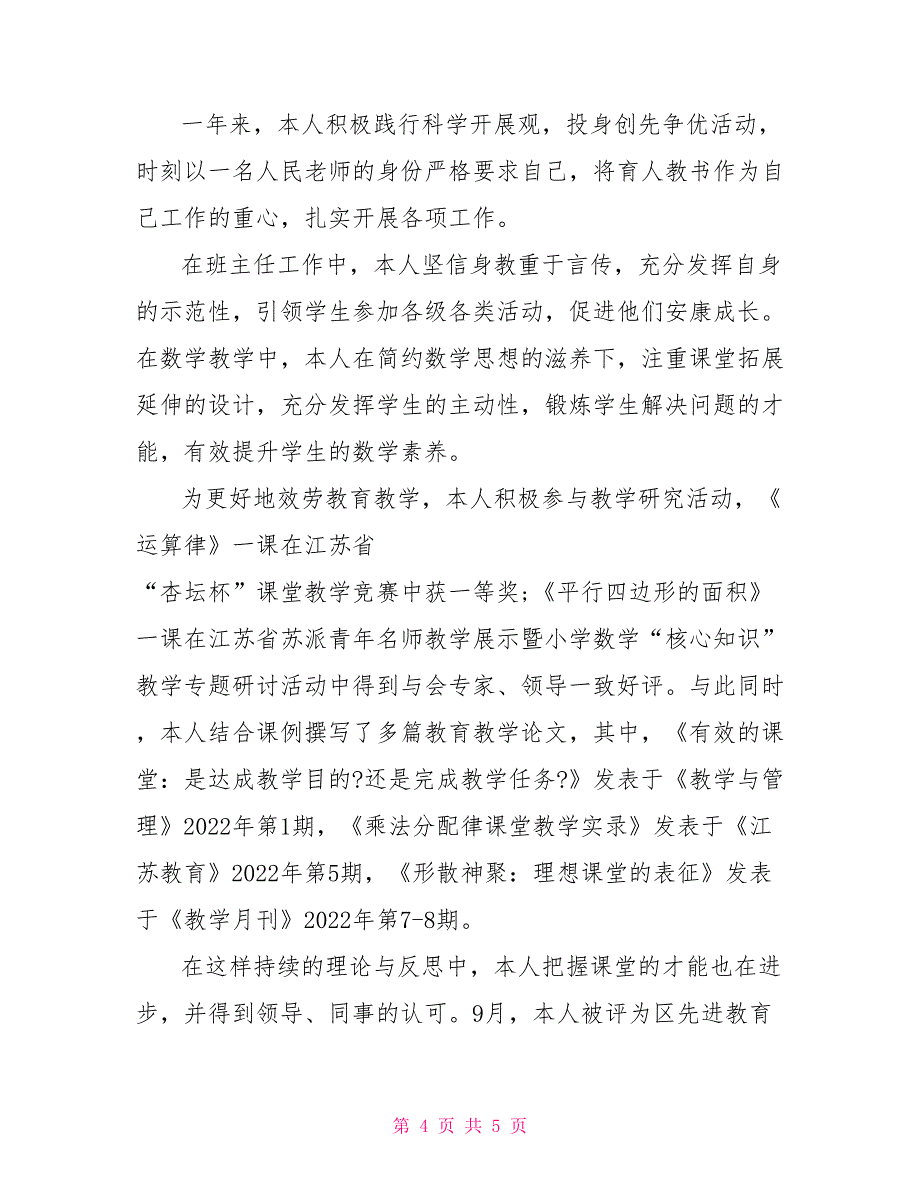 一年来，本人积极践行科学开展观，投身创先争优活动，
时刻以一名人民老师的身份严格要求自己，将育人教书作为自
己工作的重心，扎实开展各项工作。
在班主任工作中，本人坚信身教重于言传，充分发挥自身
的示范性，引领学生参加各级各类活动，促进他们安康成长。
在数学教学中，本人在简约数学思想的滋养下，注重课堂拓展
延伸的设计，充分发挥学生的主动性，锻炼学生解决问题的才
能，有效提升学生的数学素养。
为更好地效劳教育教学，本人积极参与教学研究活动，《
运算律》一课在江苏省
“杏坛杯”课堂教学竞赛中获一等奖;《平行四边形的面积》
一课在江苏省苏派青年名师教学展示暨小学数学“核心知识”
教学专题研讨活动中得到与会专家、领导一致好评。与此同时
，本人结合课例撰写了多篇教育教学论文，其中，《有效的课
堂：是达成教学目的?还是完成教学任务?》发表于《教学与管
理》2022年第1期，《乘法分配律课堂教学实录》发表于《江
苏教育》2022年第5期，《形散神聚：理想课堂的表征》发表
于《教学月刊》2022年第7-8期。
在这样持续的理论与反思中，本人把握课堂的才能也在进
步，并得到领导、同事的认可。9月，本人被评为区先进教育
第 4 页 共 5 页